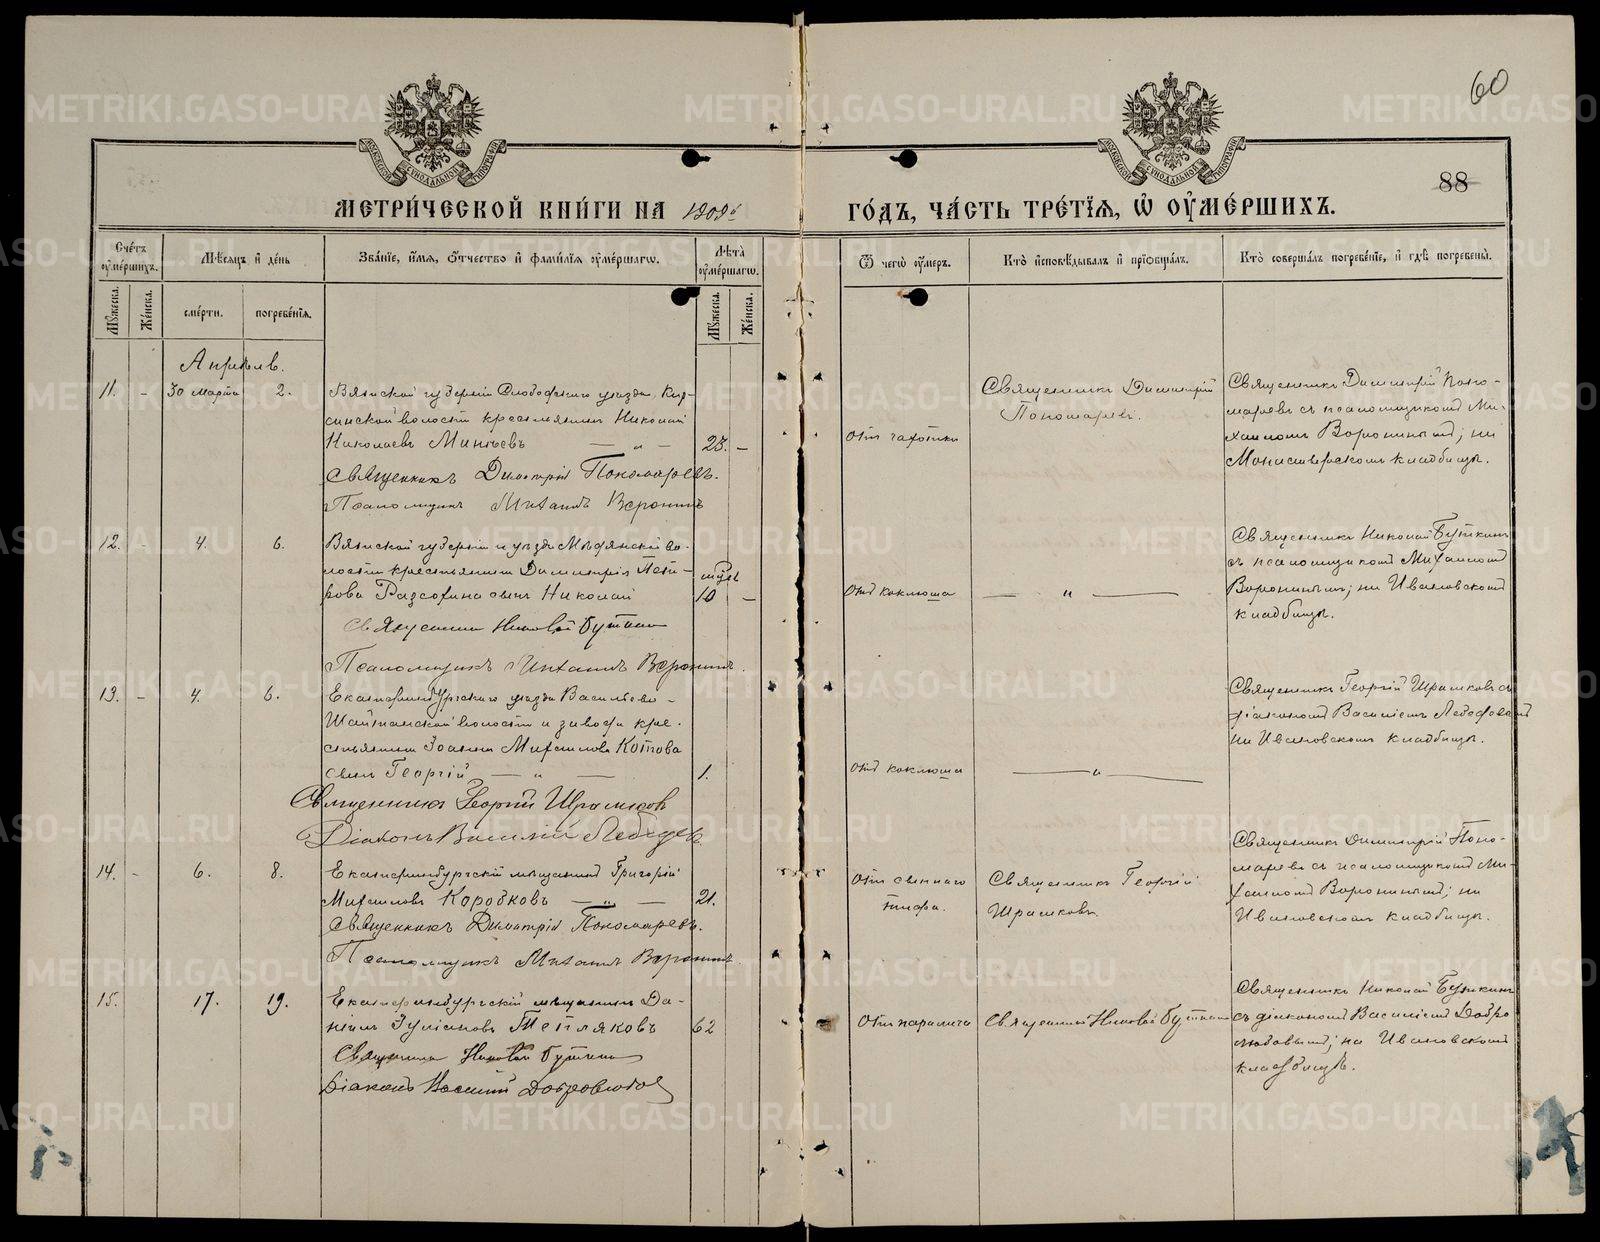 60
88
МЕТРИ́ЧЕСКОЙ КНИ́ГИ НА 1909й
ГО́ДЪ, ЧА́СТЬ ТРЕ́ТІѦ, Ѡ҆ ОУ҆МЕ́РШИХЪ.
Сче́тъ оу҆ме́ршихъ.
Мѣ́сяцъ и҆ де́нь
Зва́нїе, и҆́мѧ, ѻ҆́тчество и҆ фами́лїѧ оу҆ме́ршагѡ.
Лѣ́та оу҆ме́ршагѡ.
Ѿ чегѡ̀ оу҆́меръ.
Кто̀ и҆сповѣ́дывалъ и҆ прїѡбща́лъ.
Кто̀ соверша́лъ погребе́нїе, и҆ гдѣ̀ погребены̀.
Мꙋ́жеска.
Же́нска.
сме́рти.
погребе́нїѧ.
Мꙋ́жеска.
Же́нска.
Апрѣль.
11. - 30 марта 2.
Вятской губерніи Слободского уѣзда,
синской волости крестьянинъ Николай
Николаевъ Минѣевъ — „ — 23. —
Священникъ Димитрій Пономаревъ.
Псаломщикъ Михаилъ Воронинъ
отъ чахотки
Священникъ Димитрій
Пономаревъ.
Священникъ Димитрій Поно-
маревъ съ псаломщикомъ Ми-
хаиломъ Воронинымъ; на
Монастырскомъ кладбищѣ.
12. - 4. 6.
Вятской губерніи и уѣзда во-
лости крестьянина Димитрія Пет-
рова сынъ Николай
10 —
Священникъ Николай Буткинъ
Псаломщикъ Михаилъ Воронинъ.
отъ коклюша
— „ —
Священникъ Николай Буткинъ
съ псаломщикомъ Михаиломъ
Воронинымъ; на Ивановскомъ
кладбищѣ.
13. - 4. 6.
Екатеринбургскаго уѣзда Васильево-
Шайтанской волости и завода кре-
стьянина Іоанна Михаилова Котова
сынъ Георгій — „ — 1.
Священникъ Георгій Шрамковъ
Діаконъ Василій Лебедевъ
отъ коклюша
— „ —
Священникъ Георгій Шрамковъ съ
діакономъ Василіемъ
на Ивановскомъ кладбищѣ.
14. - 6. 8.
Екатеринбургскій мѣщанинъ Григорій
Михаиловъ Коробковъ — „ — 21.
Священникъ Димитрій Пономаревъ.
Псаломщикъ Михаилъ Воронинъ.
отъ сыпного
тифа.
Священникъ Георгій
Шрамковъ.
Священникъ Димитрій Поно-
маревъ съ псаломщикомъ Ми-
хаиломъ Воронинымъ; на
Ивановскомъ кладбищѣ.
15. 17. 19.
Екатеринбургскій мѣщанинъ Да-
ніилъ Тепляковъ 62
Священникъ Николай Буткинъ
Діаконъ Василій Добролюбовъ
отъ паралича
Священникъ Николай Буткинъ
Священникъ Николай Буткинъ
съ діакономъ Василіемъ Добро
любовымъ; на Ивановскомъ
кладбищѣ.
METRIKI.GASO-URAL.RU